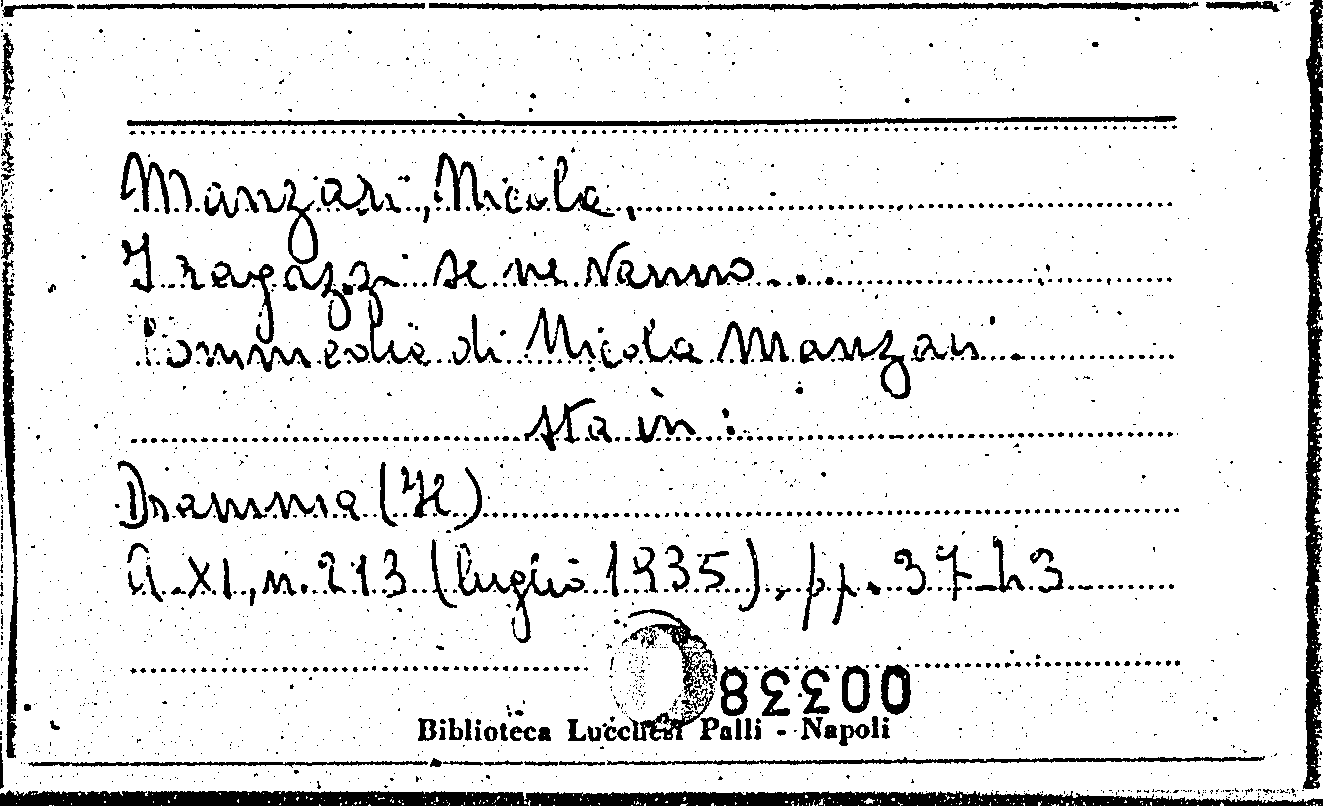 Manzari, Nicola.
I ragazzi se ne vanno...
Commedia di Nicola Manzari.
sta in:
Dramma (Il)
A. XI, n. 213 (luglio 1935), pp. 37-43
00338
Biblioteca Lucchesi Palli - Napoli